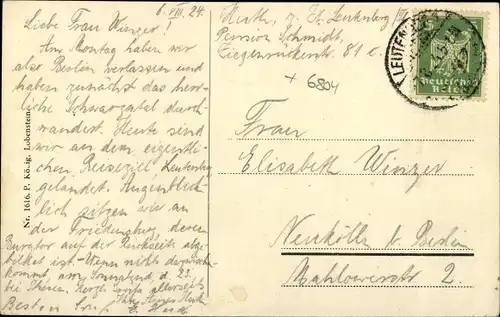 6. VIII. 24.
Liebe Frau Winzer!
Am Montag haben wir
also Berlin verlassen und
haben zunächst das herr-
liche Schwarzatal durch-
wandert. Heute sind
wir an dem eigentli-
chen Reiseziel Leutenberg
gelandet. Augenblick-
lich sitzen wir an
der Friedensburg, deren
Burgtor auf der Rückseite abge-
bildet ist. Wenn nichts dazwischen-
kommt, am Sonnabend, d. 23.
bei Ihnen. Herzl. Grüße allerseits
Besten Gruß
Nr. 1616. P. König, Lobenstein.
Hirth, z. Zt. Leutenberg
Pension Schmidt,
Ziegenrückerstr. 81 c.
+ 6804
LEUTENBERG
Deutsches
Reich
Frau
Elisabeth Winzer
Neukölln b. Berlin
Mahlowerstr. 2.